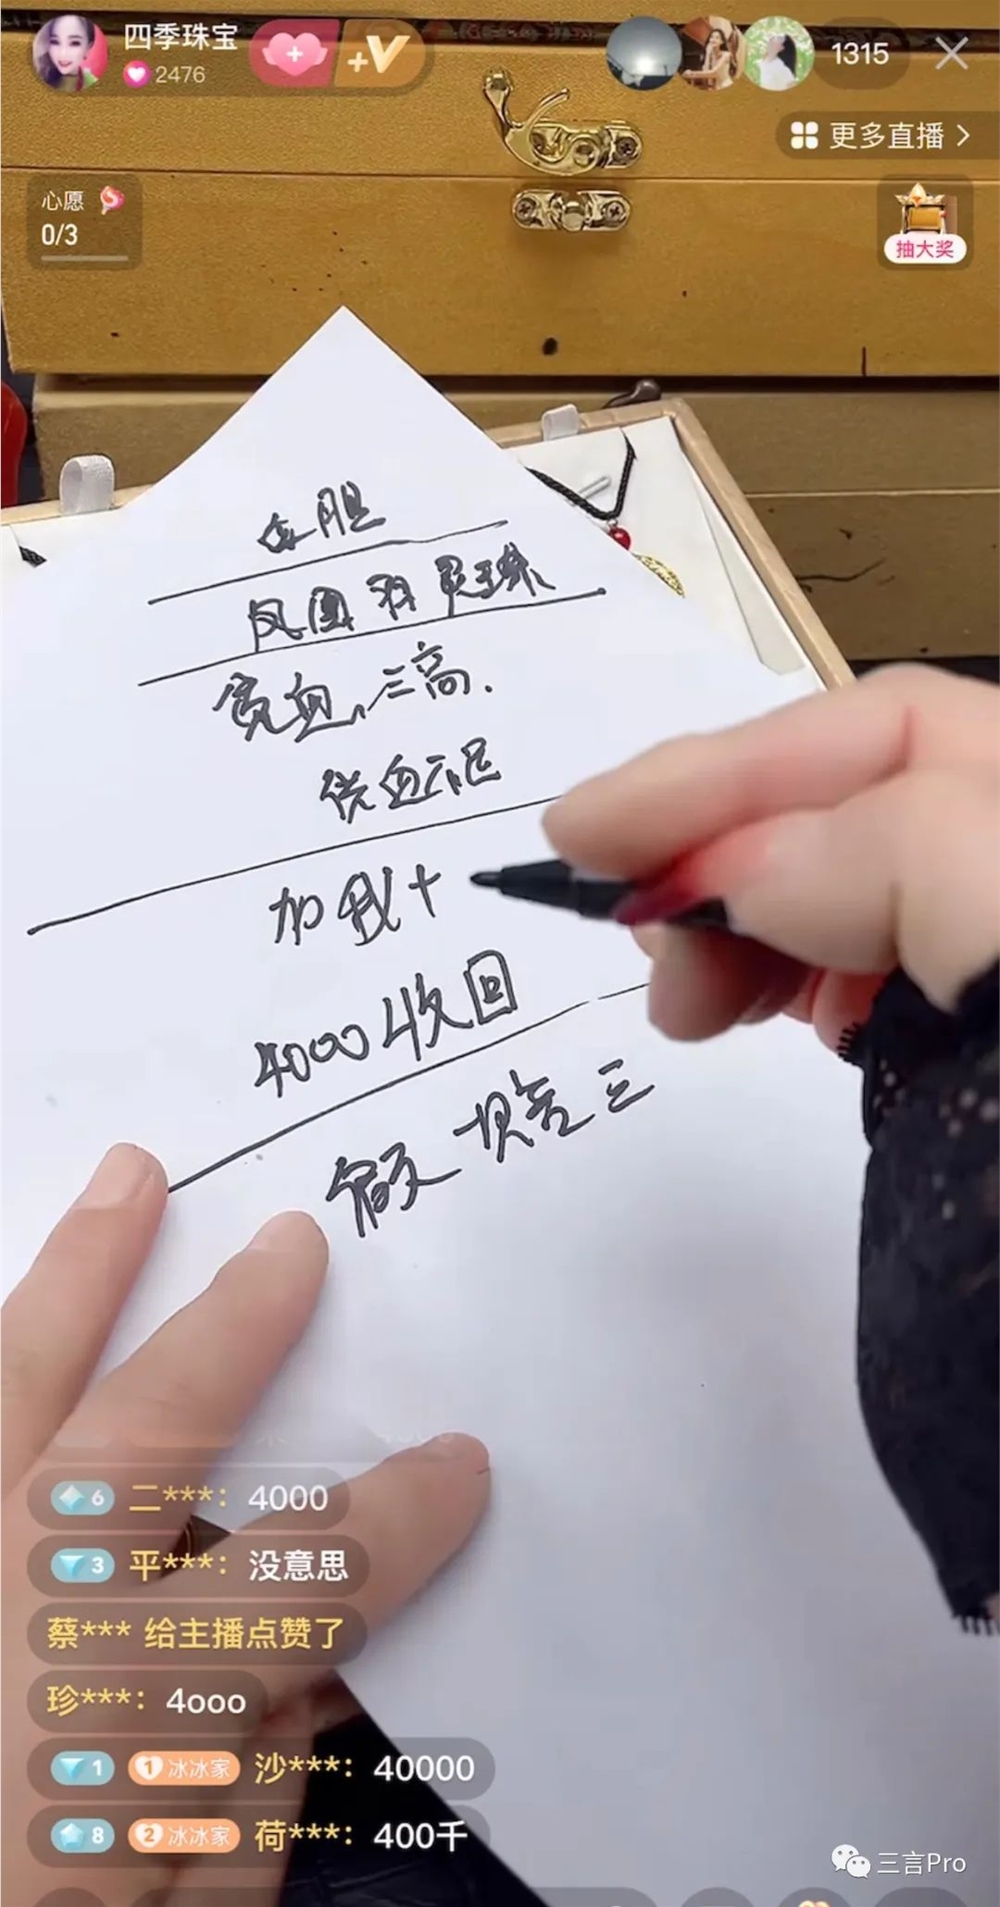 四季珠宝
2476
+V
1315
更多直播
心愿
0/3
抽大奖
胆
凤凰 羽 灵珠
贫血，三高.
供血不足
加我+
4000收回
假一賠三
6 二***：4000
3 平***：没意思
蔡*** 给主播点赞了
珍***：4ooo
1 1 冰冰家 沙***：40000
8 2 冰冰家 荷***：400千
三言Pro